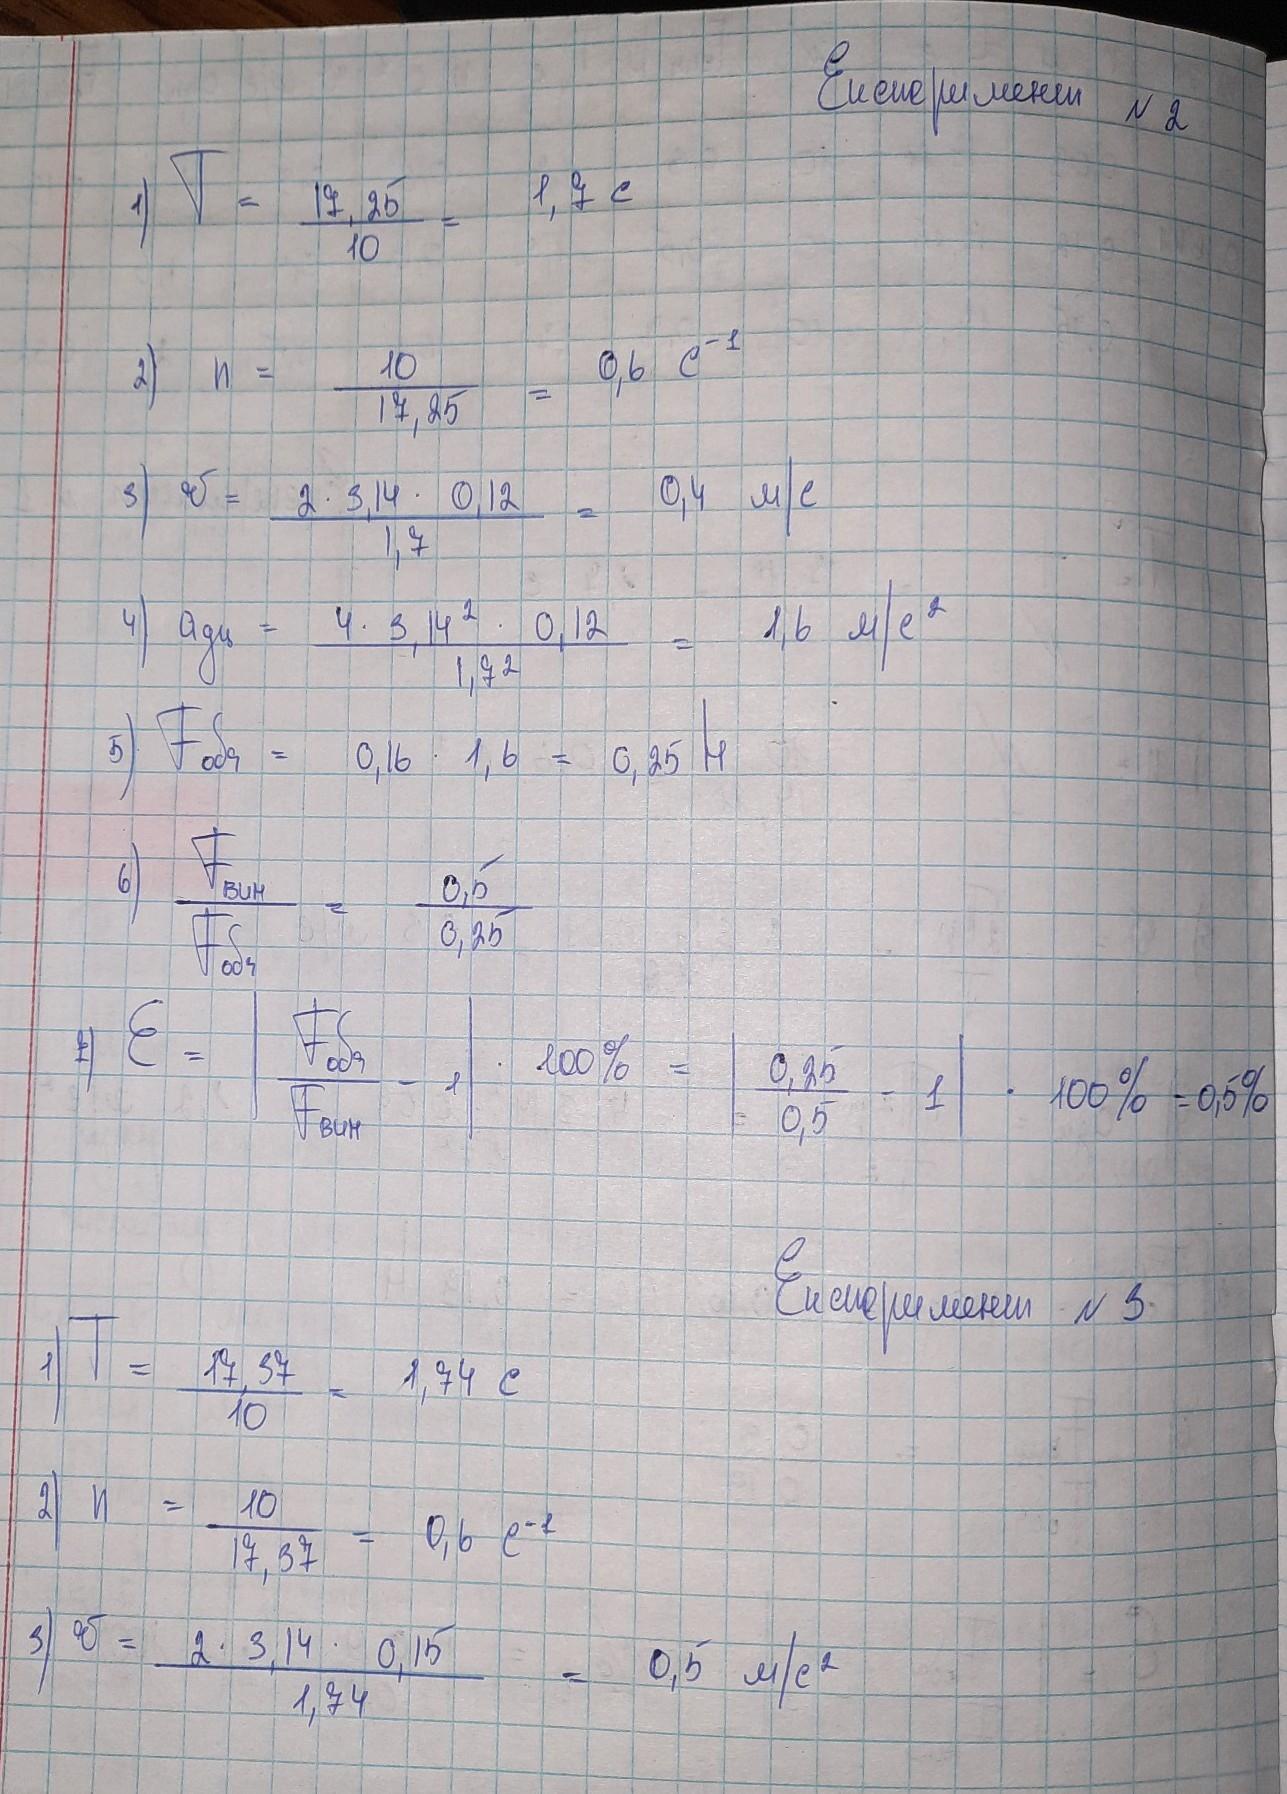 Експеримент №2
1) T = 17,25 / 10 = 1,7 с
2) n = 10 / 17,25 = 0,6 с⁻¹
3) v = 2 · 3,14 · 0,12 / 1,7 = 0,4 м/с
4) aдц = 4 · 3,14² · 0,12 / 1,7² = 1,6 м/с²
5) Fобч = 0,16 · 1,6 = 0,25 Н
6) Fвим / Fобч = 0,5 / 0,25
7) Ɛ = | Fобч / Fвим - 1 | · 100% = | 0,25 / 0,5 - 1 | · 100% = 0,5%
Експеримент №3
1) T = 17,37 / 10 = 1,74 с
2) n = 10 / 17,37 = 0,6 с⁻¹
3) v = 2 · 3,14 · 0,15 / 1,74 = 0,5 м/с²